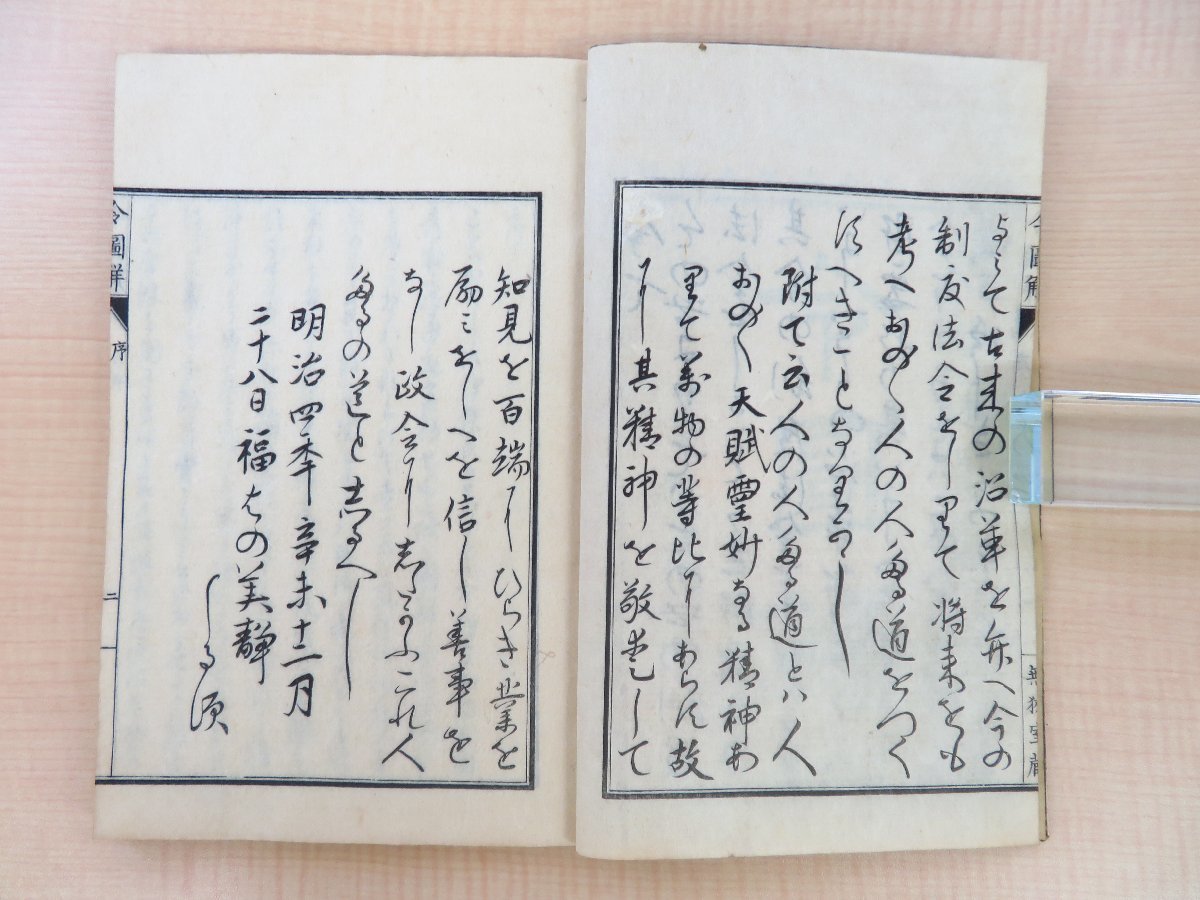 よミて古来の沿革を弁へ今の
制度法令をしりて将来をも
考へおの〱人の人たる道をつく
すへきことなりかし
附て云人の人たる道とハ人
おの〱天賦霊妙なる精神あ
りて万物の等比にあらす故
に其精神を敬楚して
知見を百端にひらき業を
励ミをしへを信し善事を
なし政令にしたかふこれ人
たるの道と志るへし
明治四年辛未十二月
二十八日福はの美静
しるす
令圖解
序
二
令圖解
無窮室蔵